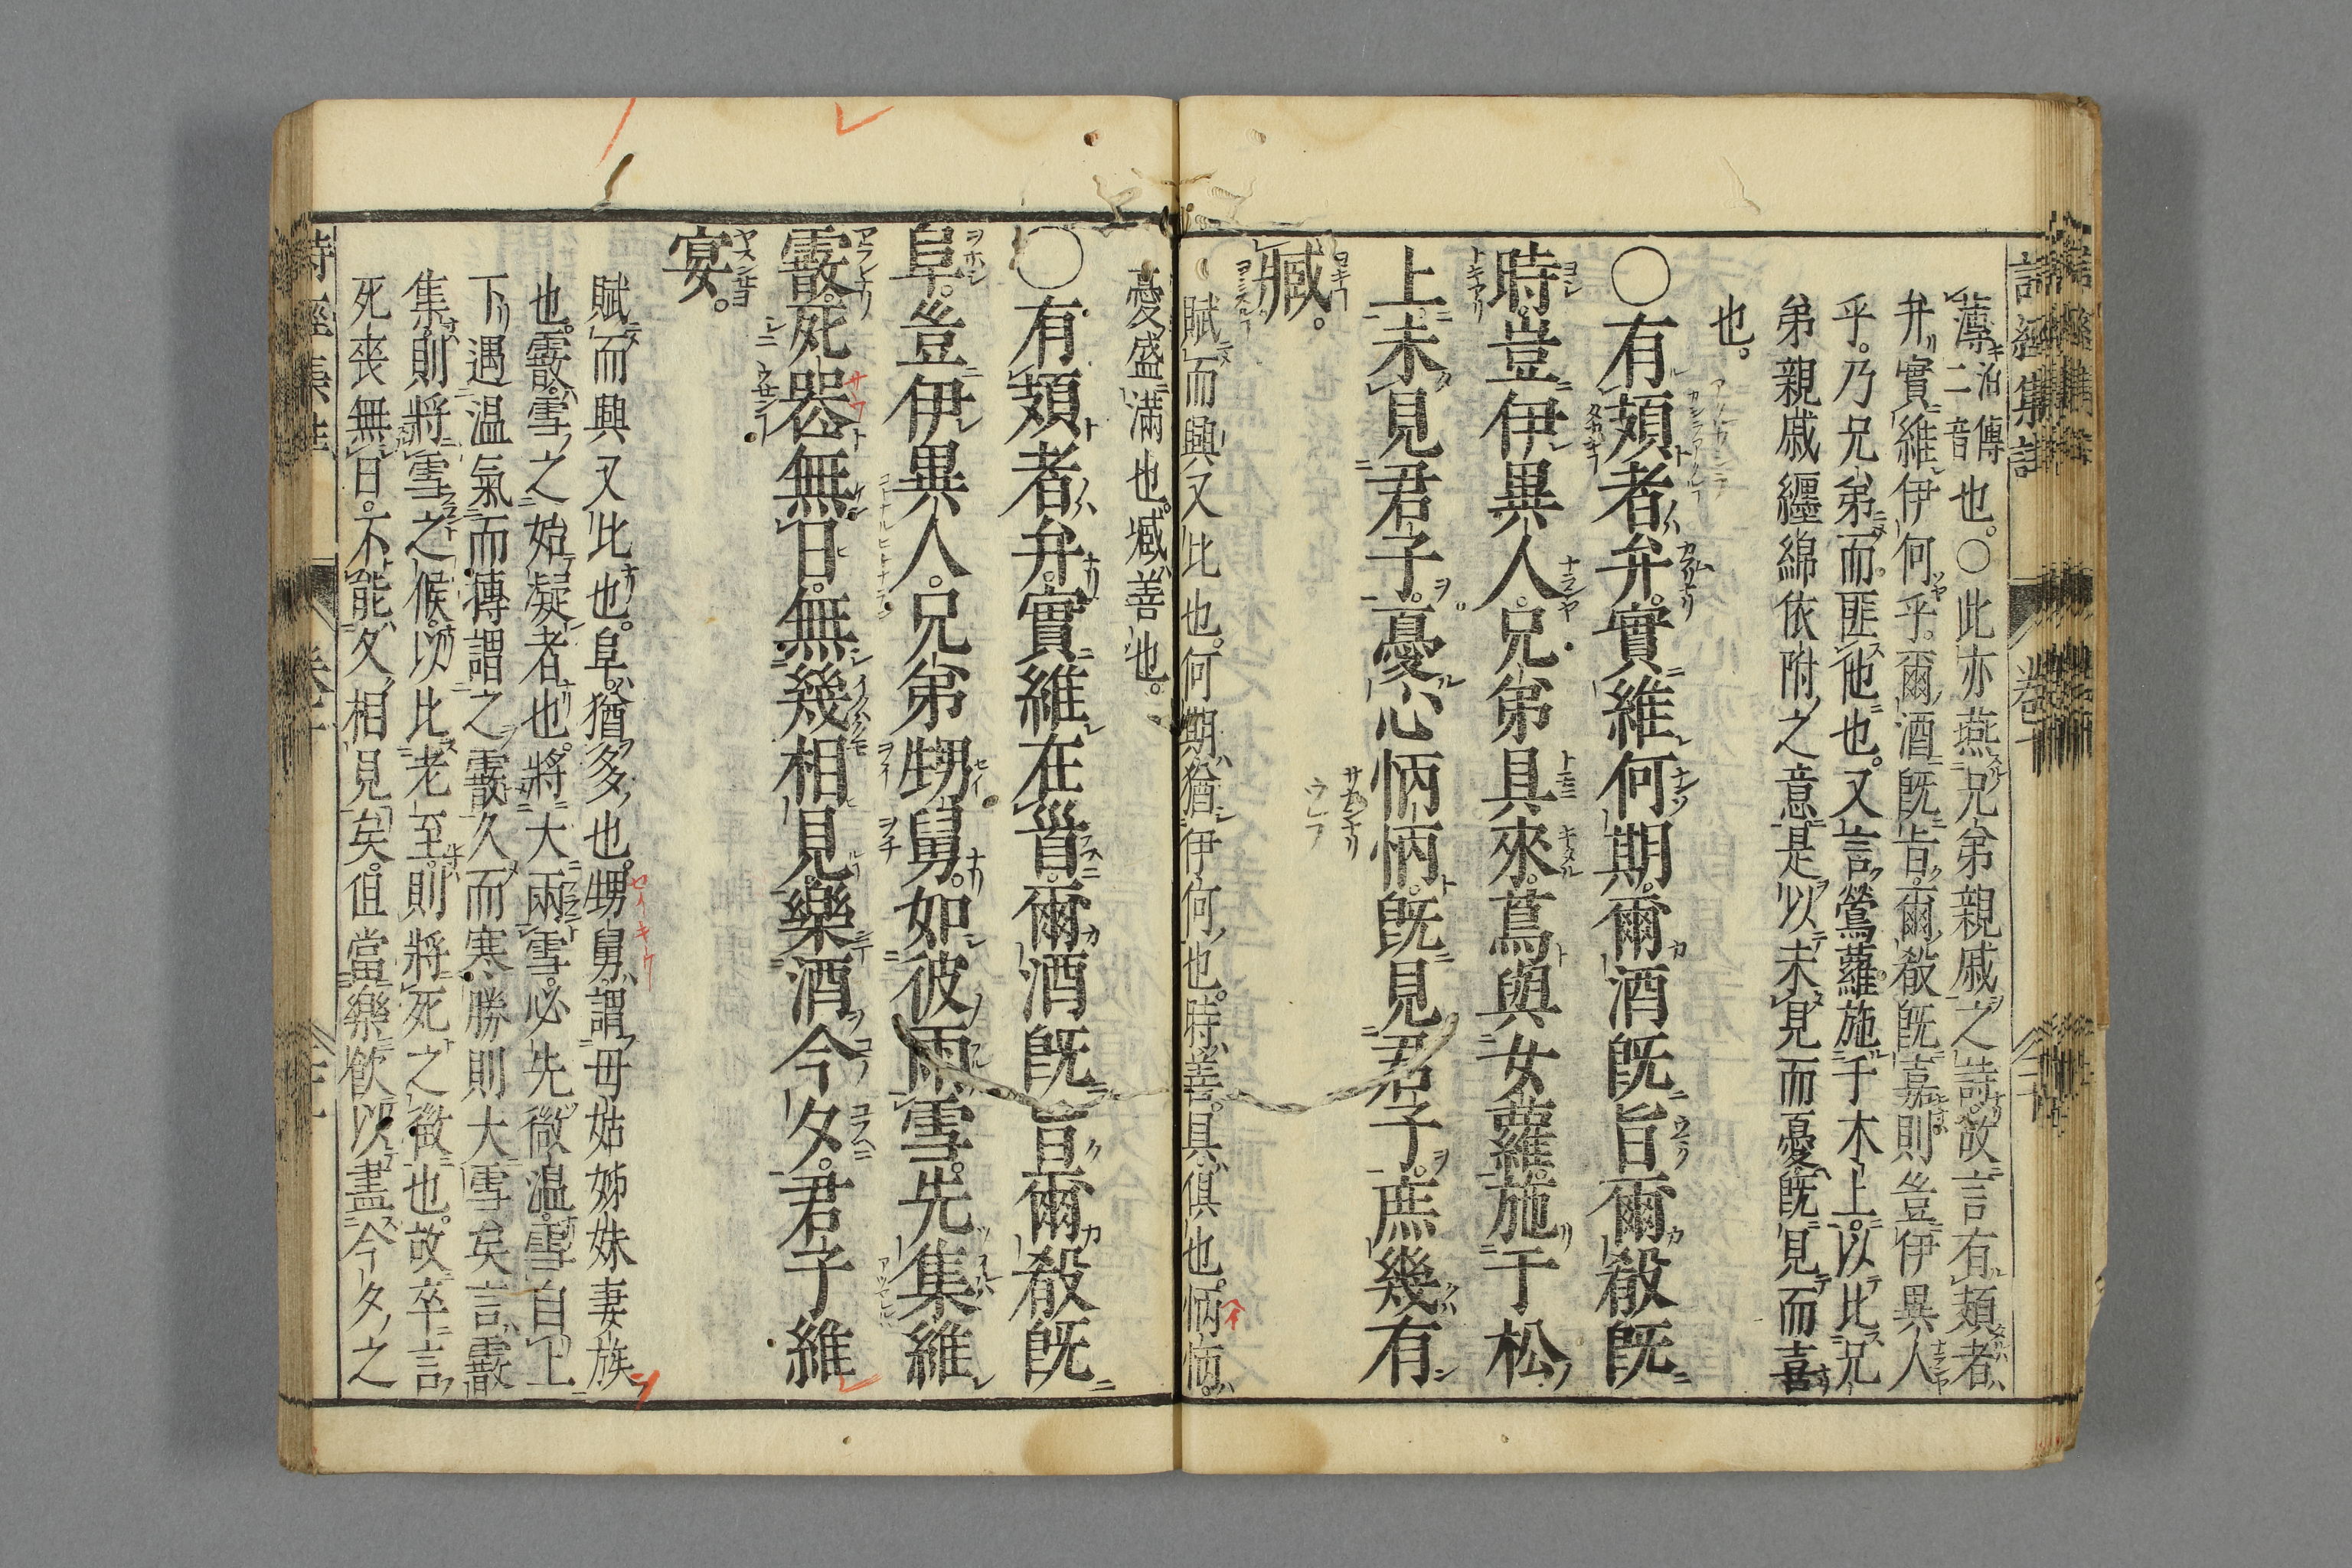 薄泊二音傅也。○此亦燕兄弟親戚之詩。故言有頍者
弁實維伊何乎。爾酒旣旨。爾殽旣嘉。則豈伊異人
乎。乃兄弟而匪他也。又言蔦蘿施于木上。以比兄
弟親戚纒綿依附之意。是以未見而憂旣見而喜
也。
○有頍者弁。實維何期。爾酒旣旨爾殽旣
時。豈伊異人。兄弟具來。蔦與女蘿。施于松
上。未見君子。憂心怲怲。旣見君子。庶幾有
臧。
賦而興又比也。何期。猶伊何也。時。善。具。俱也。怲怲。
憂盛滿也。臧。善也。
○有頍者弁。實維在首。爾酒旣旨爾殽旣
阜。豈伊異人。兄弟甥舅。如彼雨雪。先集維
霰。死喪無日。無幾相見。樂酒今夕。君子維
宴。
賦而興又比也。阜。猶多也。甥舅。謂母姑姊妹妻族
也。霰。雪之始凝者也。將大雨雪。必先微溫。雪自上
下。遇温氣而摶。謂之霰。久而寒勝則大雪矣言霰
集則將雪之候。以比老至則將死之徵也。故卒言
死喪無日。不能久相見矣。但當樂飮以盡今夕之
詩經集註
卷十